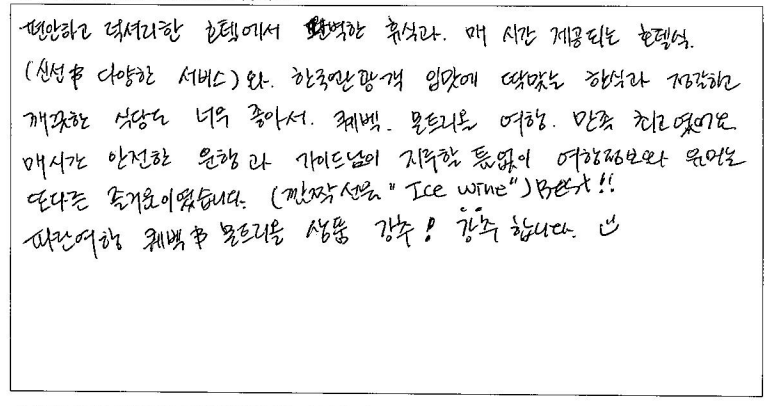 편안하고 럭셔리한 호텔에서 완벽한 휴식과. 매 시간 제공되는 호텔식.
(신선 & 다양한 서비스)와. 한국관광객 입맛에 딱맞는 한식과 정갈하고
깨끗한 식당도 너무 좋아서. 퀘백. 몬트리올 여행. 만족 최고였어요
매시간 안전한 운행과 가이드님의 지루할 틈없이 여행정보와 유머는
또다른 즐거움이였습니다. (깜짝선물 "Ice wine") Best!!
파란여행 퀘백 & 몬트리올 상품 강추! 강추 합니다. ☺